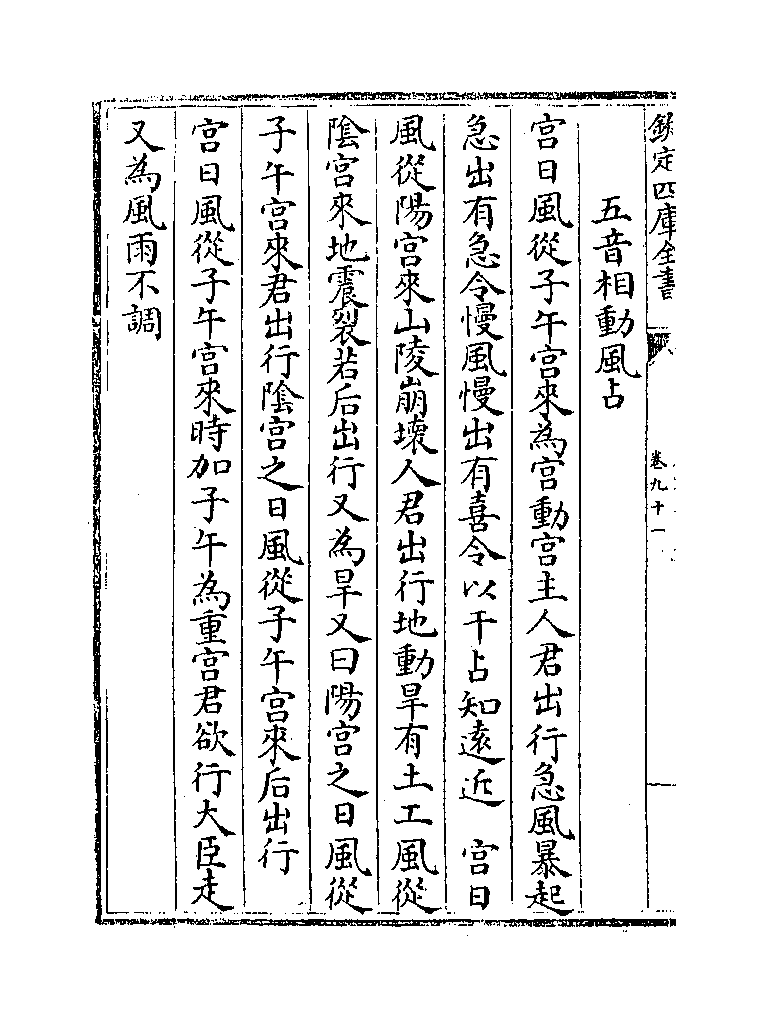 欽定四庫全書
卷九十一
五音相動風占
宮日風從子午宮來為宮動宮主人君出行急風暴起
急出有急令慢風慢出有喜令以干占知遠近　宮日
風從陽宮來山陵崩壞人君出行地動旱有土工風從
陰宮來地震裂若后出行又為旱又曰陽宮之日風從
子午宮來君出行陰宮之日風從子午宮來后出行
宮日風從子午宮來時加子午為重宮君欲行大臣走
又為風雨不調